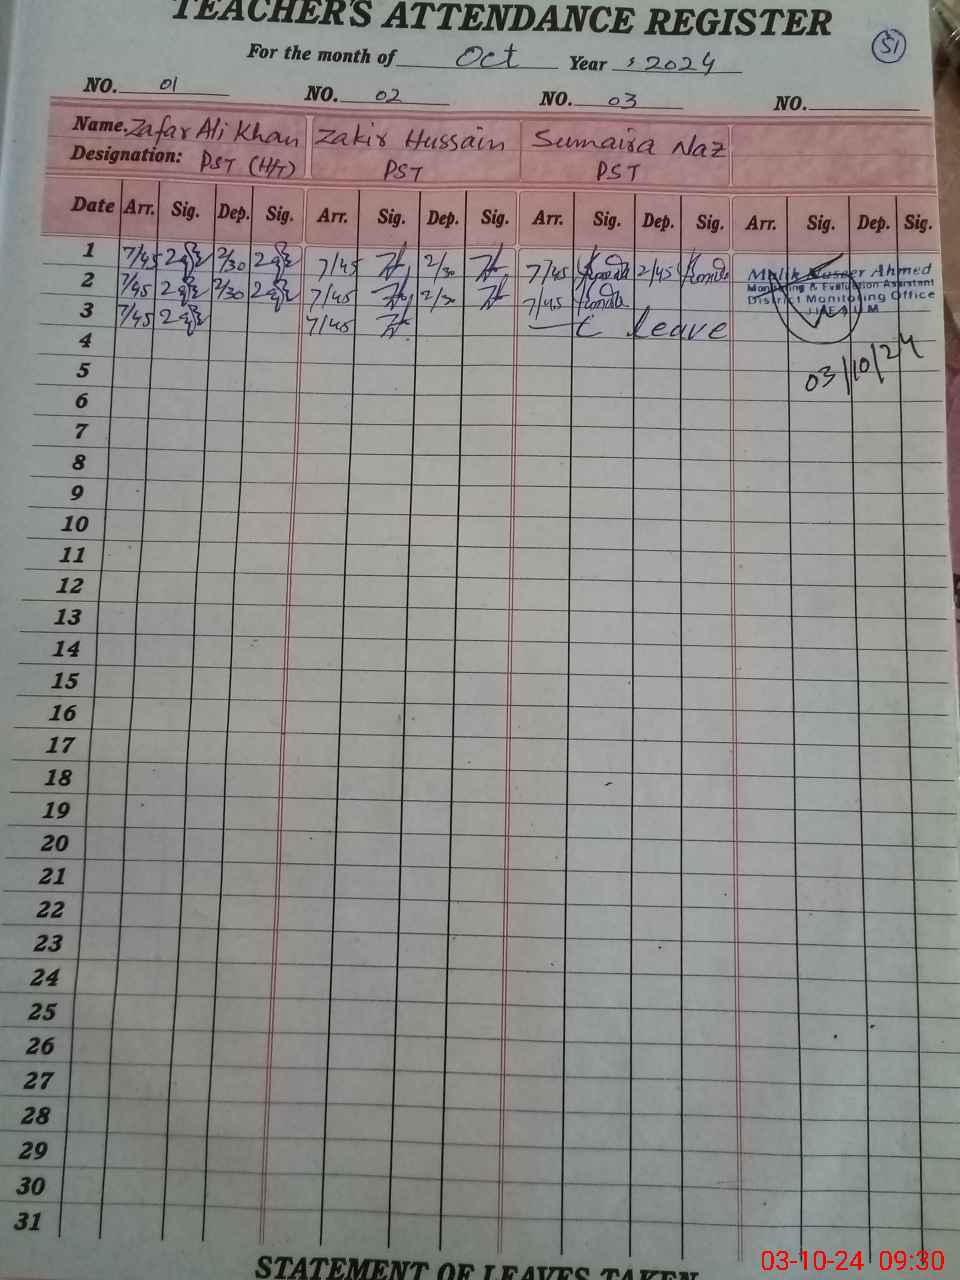 TEACHER'S ATTENDANCE REGISTER
51
For the month of Oct Year 2024
NO. 01 NO. 02 NO. 03 NO.
Name. Zafar Ali Khan Zakir Hussain Sumaira Naz
Designation: PST (H/T) PST PST
Date Arr. Sig. Dep. Sig. Arr. Sig. Dep. Sig. Arr. Sig. Dep. Sig. Arr. Sig. Dep. Sig.
1 7/45 2/30 7/45 2/30 7/45 2/45
2 7/45 2/30 7/45 2/30 7/45
3 7/45 7/45 leave
Malik Naseer Ahmed
Monitoring & Evaluation Assistant
District Monitoring Office
4
03/10/24
5
6
7
8
9
10
11
12
13
14
15
16
17
18
19
20
21
22
23
24
25
26
27
28
29
30
31
STATEMENT OF LEAVES TAKEN
03-10-24 09:30